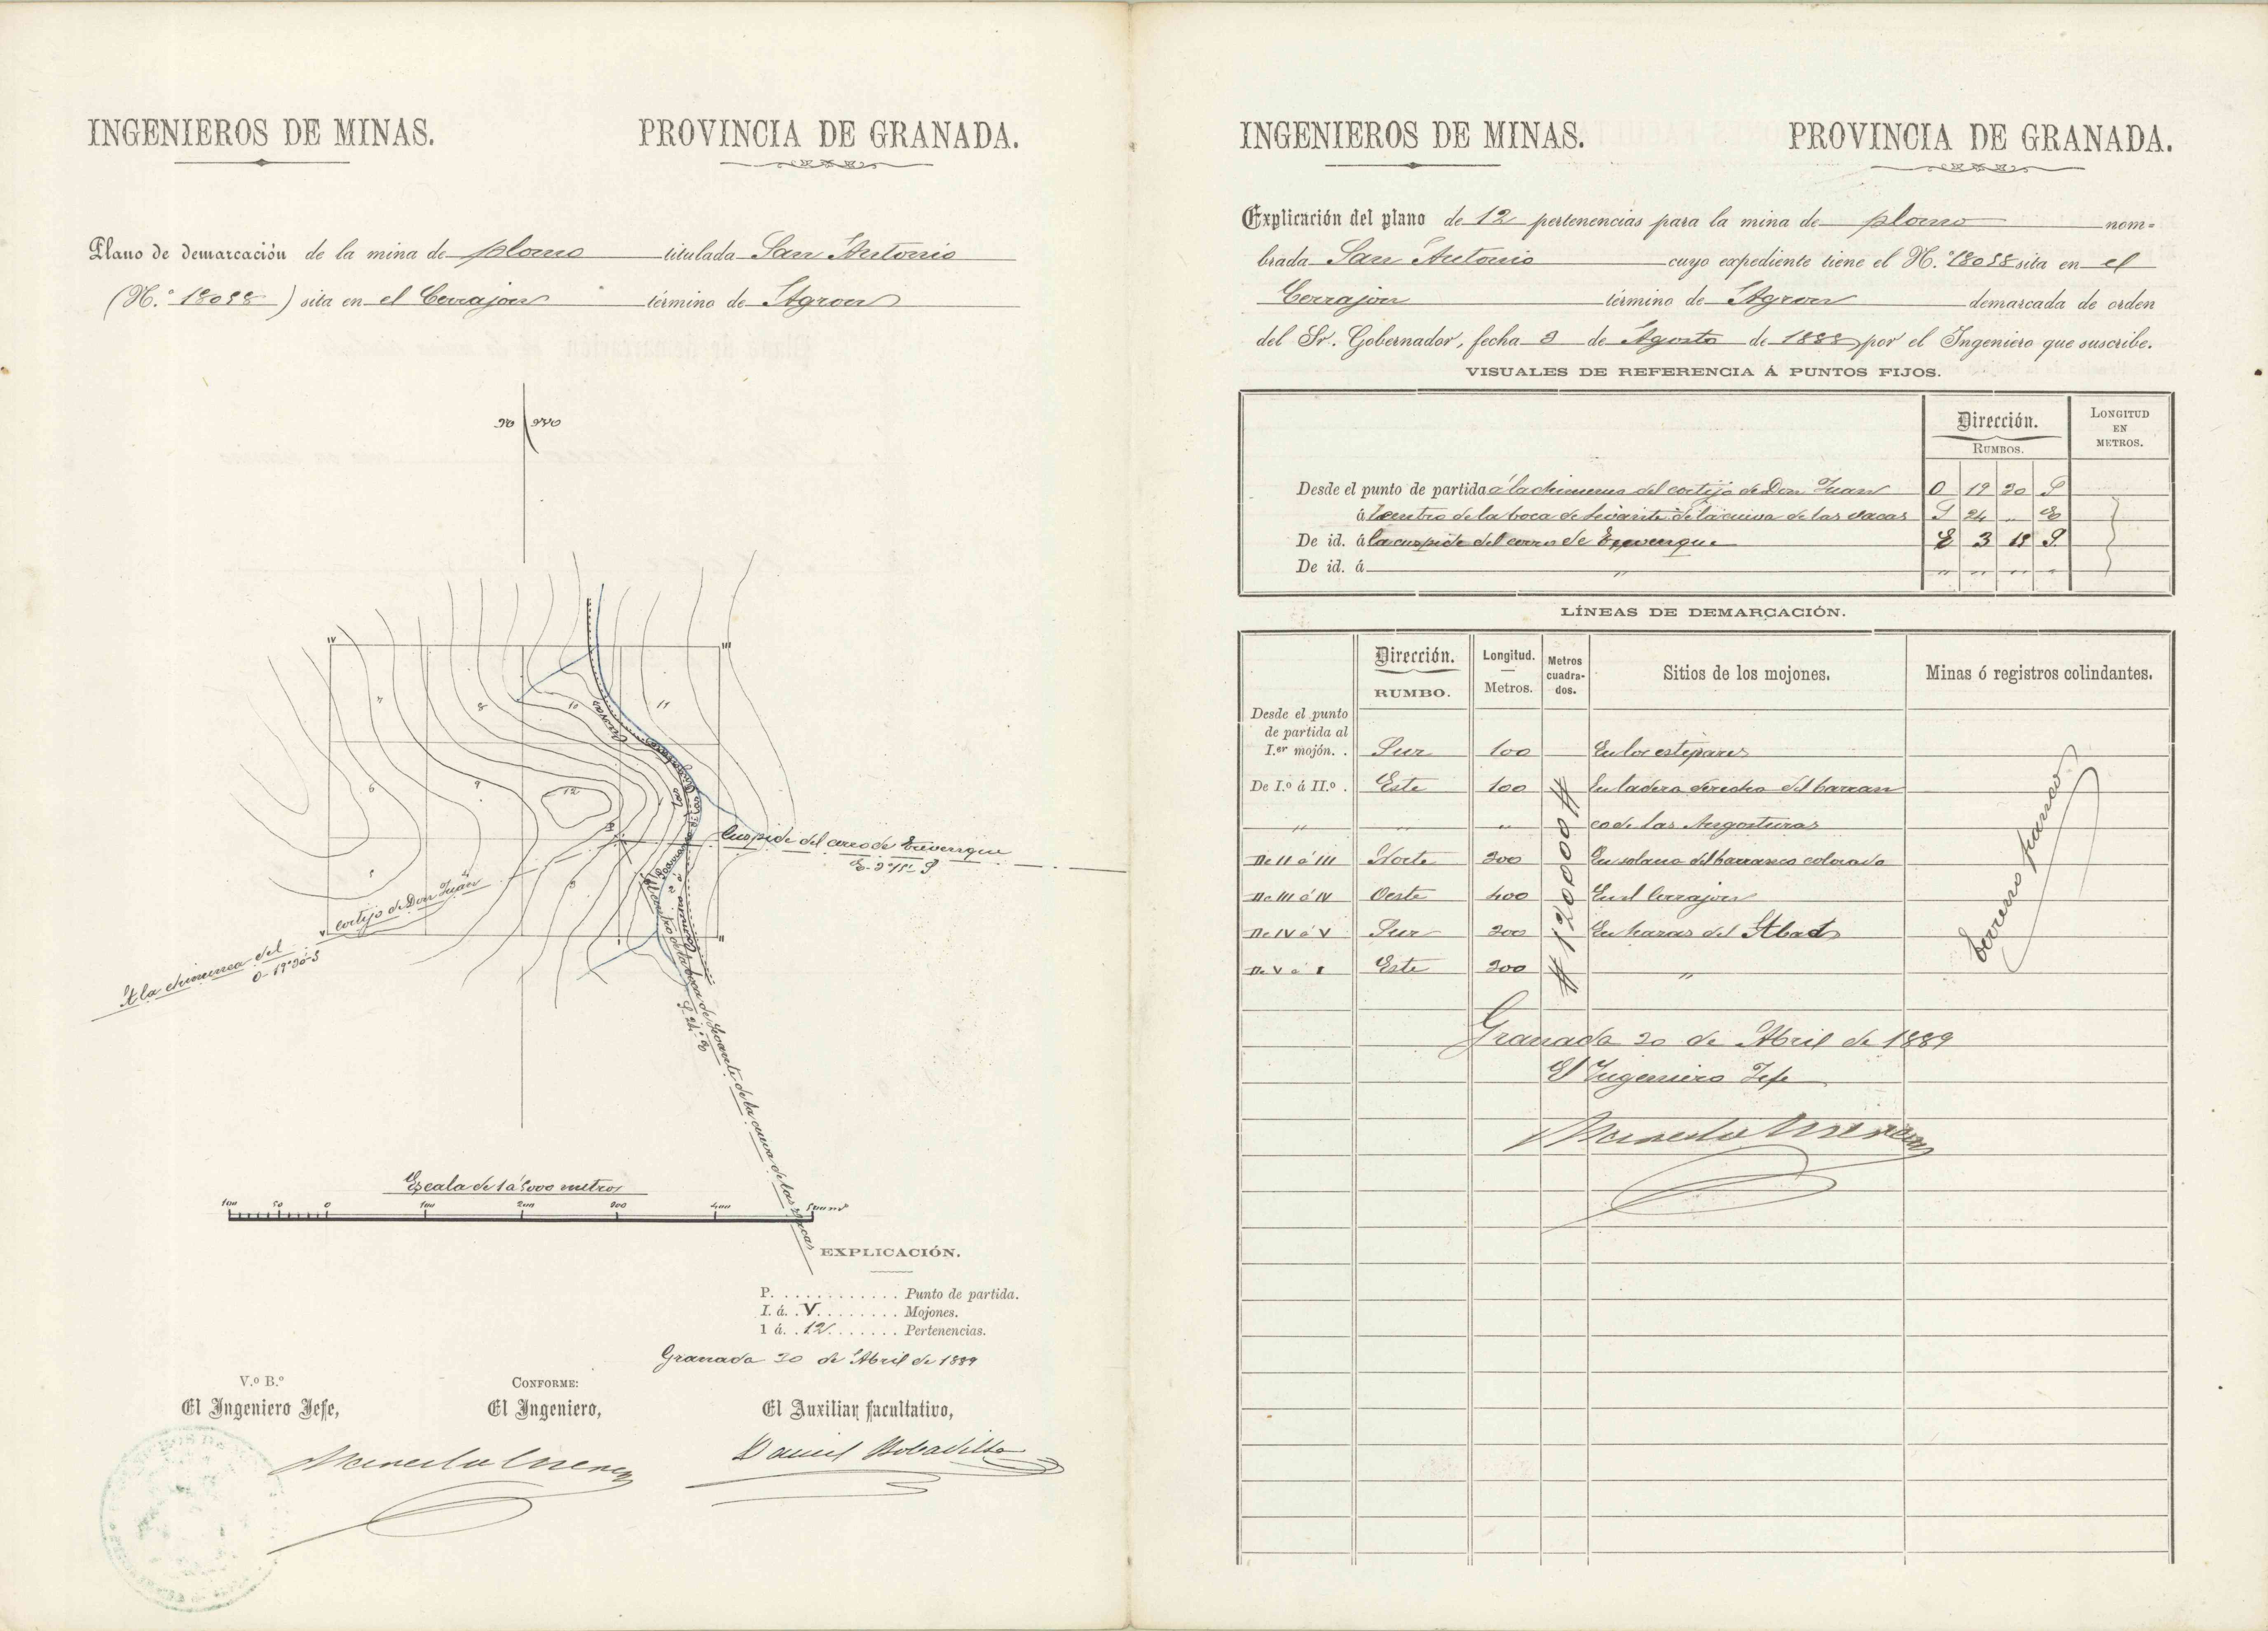 INGENIEROS DE MINAS. PROVINCIA DE GRANADA.
Plano de demarcación de la mina de plomo titulada San Antonio
(N.º 18088) sita en el Cerrajon término de Agron
IV III
7 8 10 11
6 9 12
P
5 4 3
V I II
Cuspide del cerro de Trevenque
E. 3º 15' S
A la chimenea del cortijo de Don Juan
O 19º 30' S
Camino de las
Barranco de las Angosturas
Al centro de la boca de Levante de la cueva de las Vacas
S. 24º E
Escala de 1 á 5000 metros
100 50 0 100 200 300 400 500 mº
EXPLICACIÓN.
P. . . . . . . . . . . . Punto de partida.
I. á. . V. . . . . . . . Mojones.
1 á. . 12. . . . . . . Pertenencias.
Granada 20 de Abril de 1889
V.º B.º CONFORME:
El Ingeniero Jefe, El Ingeniero, El Auxiliar facultativo,
Daniel Bobadilla
INGENIEROS DE MINAS. PROVINCIA DE GRANADA.
Explicación del plano de 12 pertenencias para la mina de plomo nom-
brada San Antonio cuyo expediente tiene el N.º 18088 sita en el
Cerrajon término de Agron demarcada de orden
del Sr. Gobernador, fecha 3 de Agosto de 1888 por el Ingeniero que suscribe.
VISUALES DE REFERENCIA Á PUNTOS FIJOS.
Dirección. LONGITUD EN METROS.
RUMBOS.
Desde el punto de partida á la chimenea del cortijo de Don Juan O 19 30 S
ál centro de la boca de Levante de la cueva de las vacas S 24 " E
De id. á la cuspide del cerro de Trevenque E 3 15 S
De id. á " " " " "
LÍNEAS DE DEMARCACIÓN.
Dirección. RUMBO. Longitud. Metros. Metros cuadra-dos. Sitios de los mojones. Minas ó registros colindantes.
Desde el punto
de partida al
I.er mojón. . Sur 100 En los estepares
De I.º á II.º . Este 100 En ladera derecha del barran
" " " co de las Angosturas
De II á III Norte 300 En solana del barranco colorado
De III á IV Oeste 400 En el Cerrajon
De IV á V Sur 300 En hazas del Abad
De V á I Este 300 "
# 120000 #
Terreno franco
Granada 20 de Abril de 1889
El Ingeniero Jefe